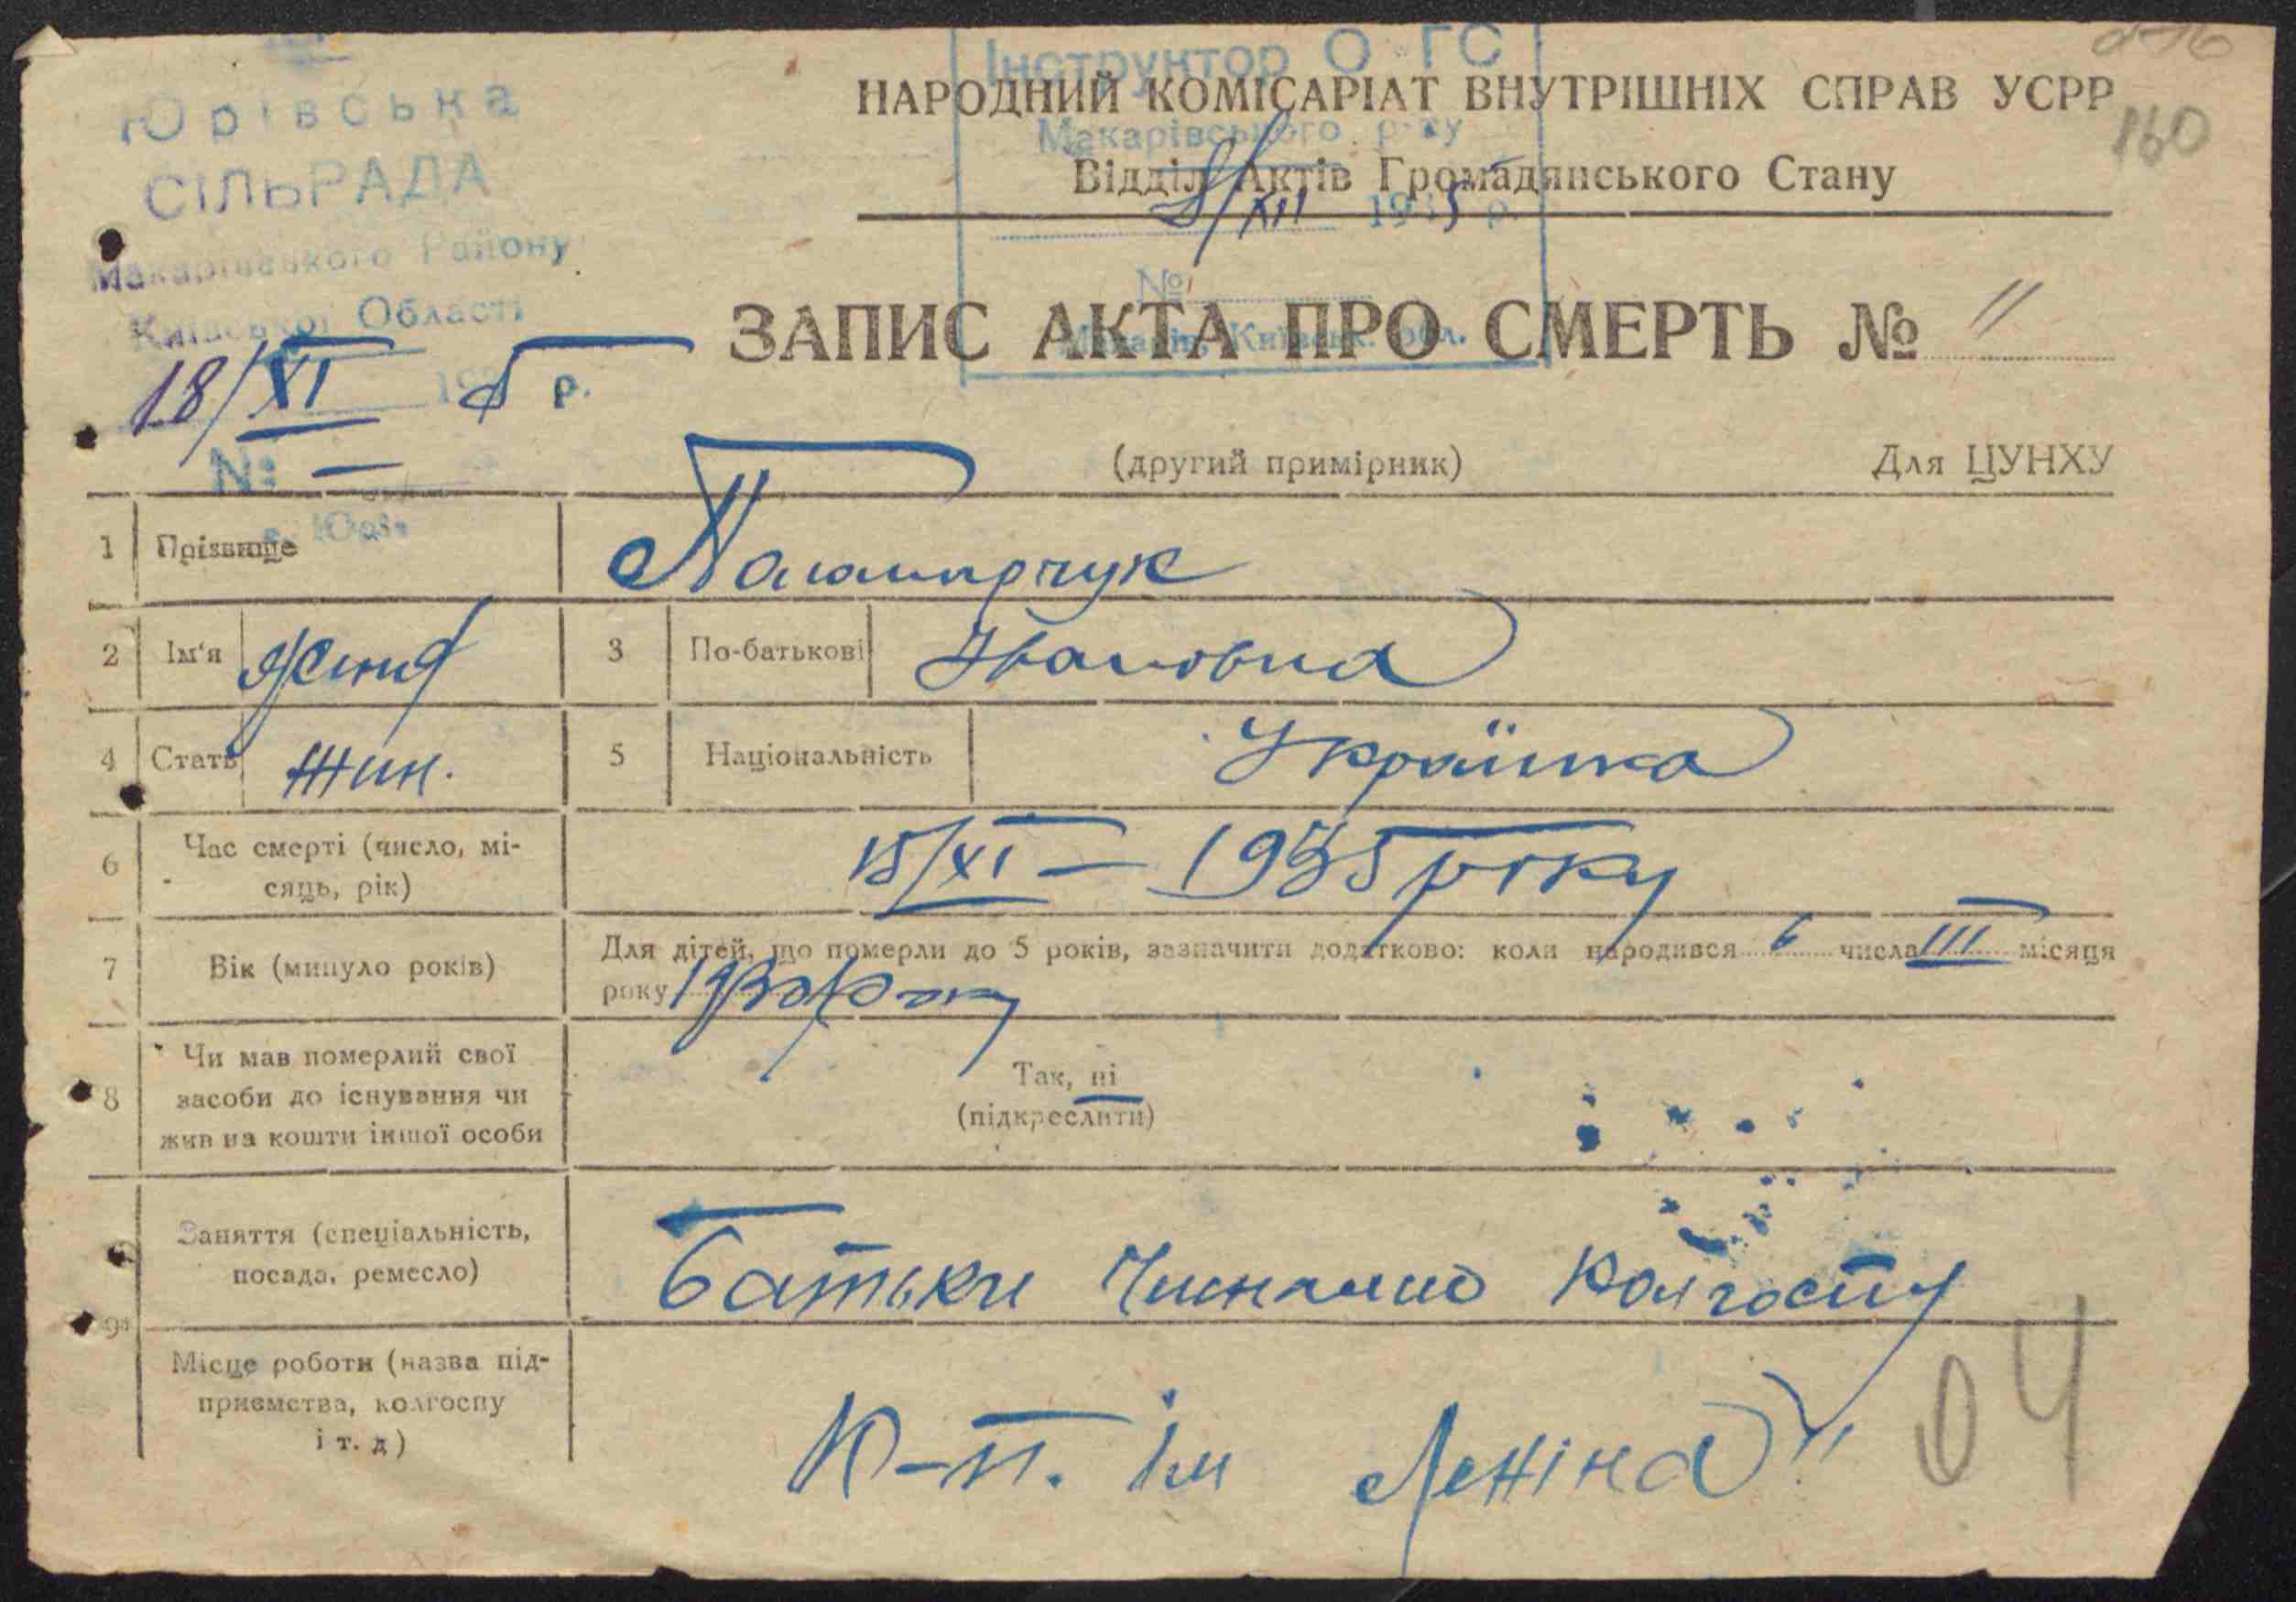 Юрівська
СІЛЬРАДА
Макарівського Району
Київської Області
18/XI 1935 р.
№ —
Інструктор О ГС
Макарівського р-ну
8/XII 1935 р.
№
Макарів, Київськ. обл.
160
НАРОДНИЙ КОМІСАРІАТ ВНУТРІШНІХ СПРАВ УСРР
Відділ Актів Громадянського Стану
ЗАПИС АКТА ПРО СМЕРТЬ № 11
(другий примірник) Для ЦУНХУ
1 Прізвище
2 Ім'я 3 По-батькові Івановна
4 Стать жин. 5 Національність Українка
6 Час смерті (число, мі-
сяць, рік) 15/XI — 1935 року
7 Вік (минуло років) Для дітей, що померли до 5 років, зазначити додатково: коли народився 6 числа III місяця
року
8 Чи мав померлий свої
засоби до існування чи
жив на кошти іншої особи
Так, ні
(підкреслити)
Заняття (спеціальність,
посада, ремесло) батьки колгоспу
9 Місце роботи (назва під-
приємства, колгоспу
і т. д)
К-п. ім Леніна"
04